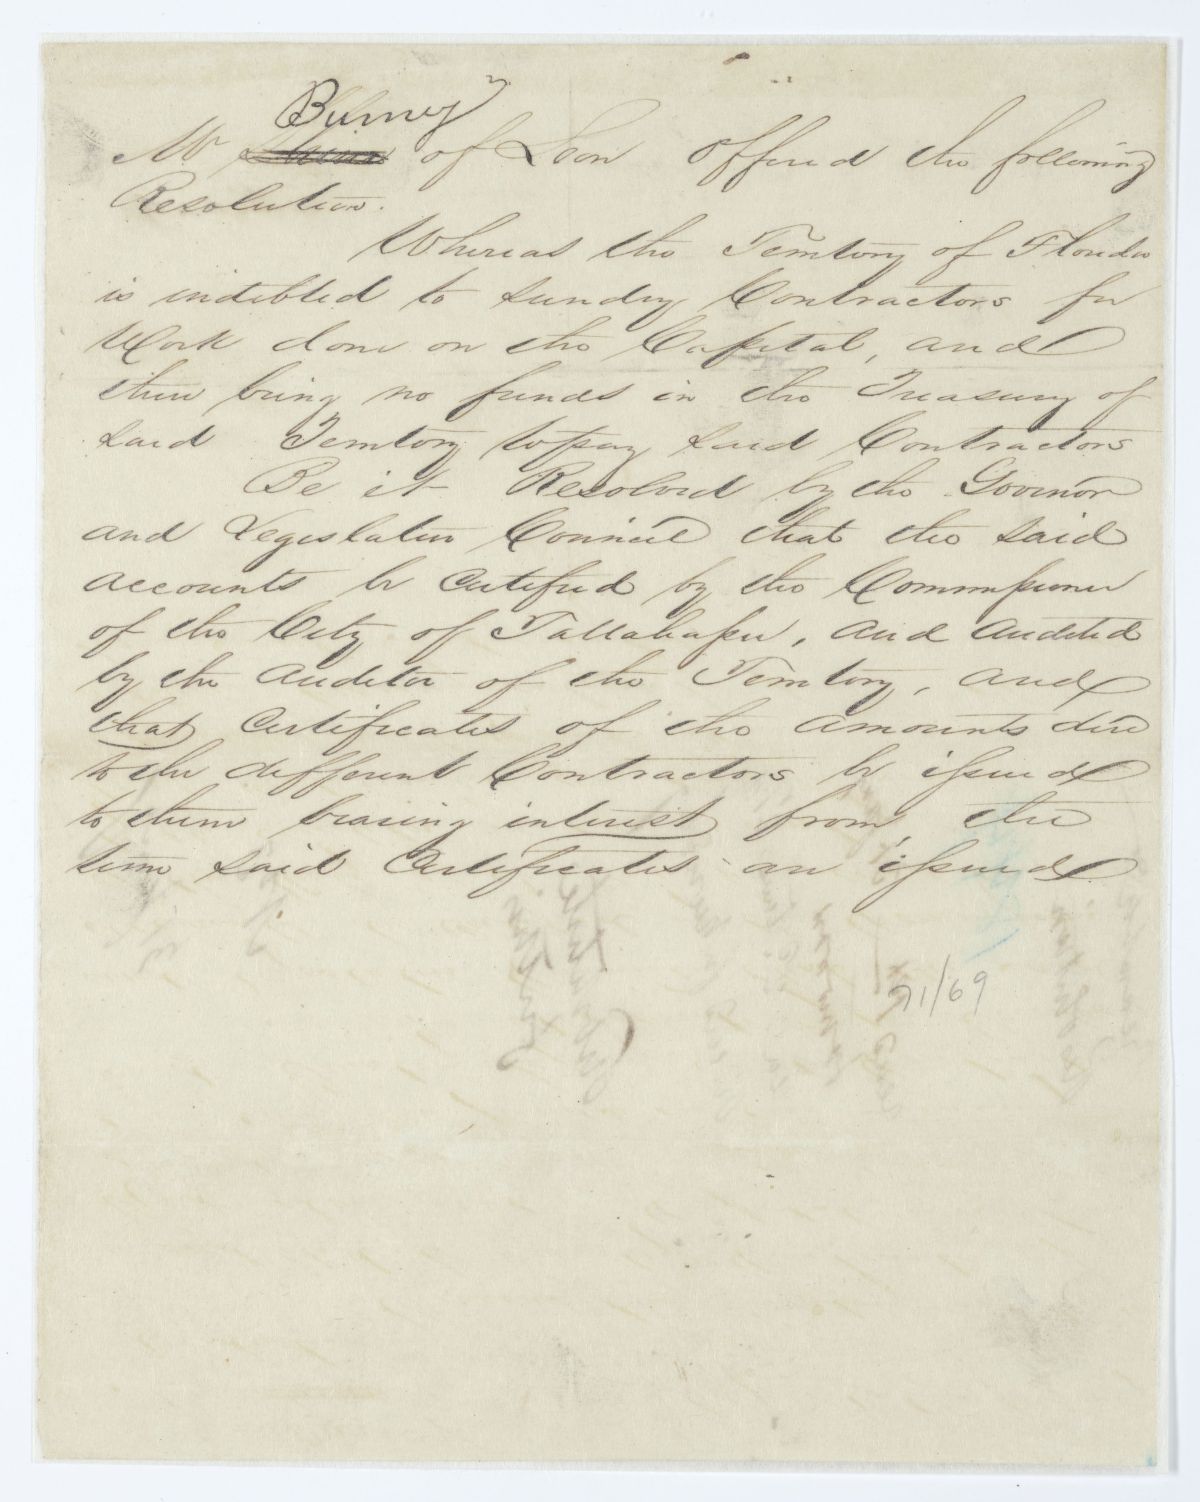 Burney
Mr of Leon offered the following
Resolution.
Whereas the Territory of Florida
is indebted to sundry Contractors for
Work done on the Capital, and
there being no funds in the Treasury of
said Territory to pay said Contractors
Be it Resolved by the Govenor
and Legislative Council that the said
accounts be Certified by the Commissioner
of the City of Tallahassee, and audited
by the auditor of the Territory, and
that Certificates of the amounts due
to the different Contractors be issued
to them bearing interest from, the
time said Certificates are issued
71/69